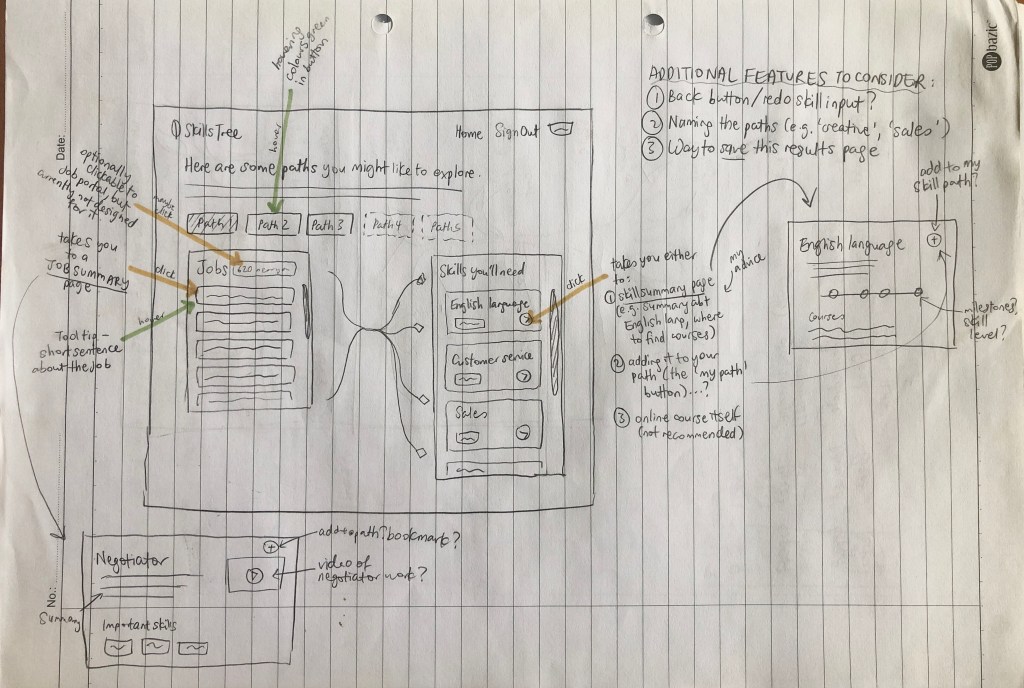 hovering
colours green
in button
hover
POP bazic
Date:
No.:
ADDITIONAL FEATURES TO CONSIDER:
① Back button/redo skill input?
② Naming the paths (e.g. 'creative', 'sales')
③ Way to save this results page
SkillsTree
Home Sign Out
Here are some paths you might like to explore.
Path 1 Path 2 Path 3 Path 4 Path 5
optionally
clickable to
Job portal, but
currently not designed
for it.
maybe
click
takes you
to a
JOB SUMMARY
page
click
hover
Tooltip –
short sentence
about the job
Jobs
Skills you'll need
English language
Customer service
Sales
click
takes you either
to:
① skill summary page
(e.g. summary abt
English lang, where
to find courses)
② adding it to your
path (the 'my path'
button)...?
③ online course itself
(not recommended)
my
advice
add to my
skill path?
English language
Courses
milestones?
skill
level?
Negotiator
Summary
Important skills
add to path? bookmark?
video of
negotiator work?